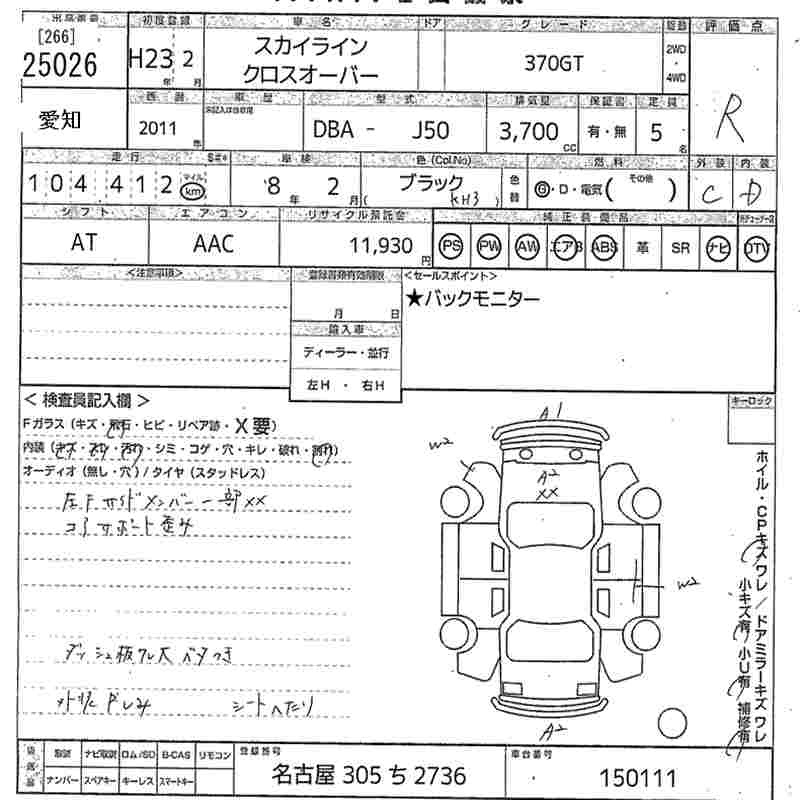 出品番号 初度登録 車名 ドア グレード 駆動 評価点
[266]
25026 H23年 2月 スカイライン クロスオーバー 370GT 2WD・4WD R
愛知
西暦 車歴 型式 排気量 保証書 定員
2011年 DBA - J50 3,700cc 有・無 5名
走行 車検 色(Col.No) 燃料 外装 内装
104,412 マイル km 8年 2月 ブラック (KH3) 色替 G・D・電気( その他 ) C D
シフト エアコン リサイクル預託金 純正装備品
AT AAC 11,930円 PS PW AW エアB ABS 革 SR ナビ DTV
<注意事項> 登録書類有効期限 <セールスポイント>
月 日 ★バックモニター
輸入車
ディーラー・並行
左H・右H
<検査員記入欄> キーロック
Fガラス(キズ・飛石・ヒビ・リペア跡・X要)
内装(キズ・スリ・汚れ・シミ・コゲ・穴・キレ・破れ・割れ)
オーディオ(無し・穴)/タイヤ(スタッドレス)
左Fサイドメンバー一部XX
コアサポート歪み
ダッシュ板ワレ大 ベタつき
シートヘたり
A1
W2
A2
XX
W2
A2
ホイル・CPキズワレ/ドアミラーキズワレ
小キズ有 小U有 補修有
取説 ナビ取説 ロム/SD B-CAS リモコン 登録番号 車台番号
ナンバー スペアキー キーレス スマートキー 名古屋 305 ち 2736 150111